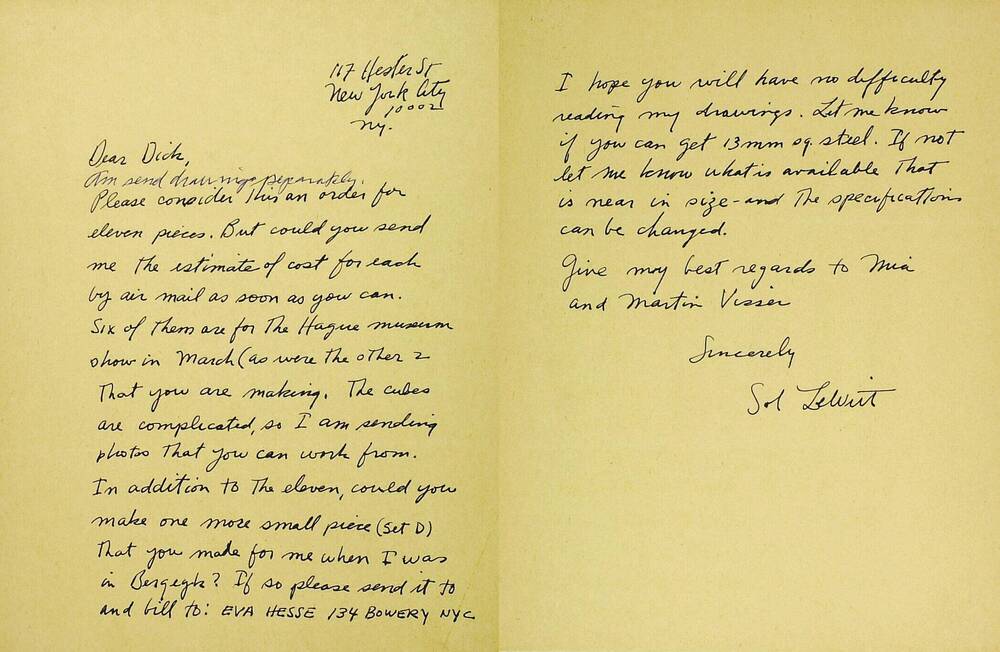 117 Hester St
New York City
10002
Ny.
Dear Dick,
Am send drawings separately.
Please consider this an order for
eleven pieces. But could you send
me the estimate of cost for each
by air mail as soon as you can.
Six of them are for the Hague museum
show in March (as were the other 2
that you are making. The cubes
are complicated, so I am sending
photos that you can work from.
In addition to the eleven, could you
make one more small piece (Set D)
that you made for me when I was
in Bergeyk? If so please send it to
and bill to: EVA HESSE 134 BOWERY NYC
I hope you will have no difficulty
reading my drawings. Let me know
if you can get 13mm sq. steel. If not
let me know what is available that
is near in size - and the specifications
can be changed.
Give my best regards to Mia
and Martin Visser
Sincerely
Sol LeWitt